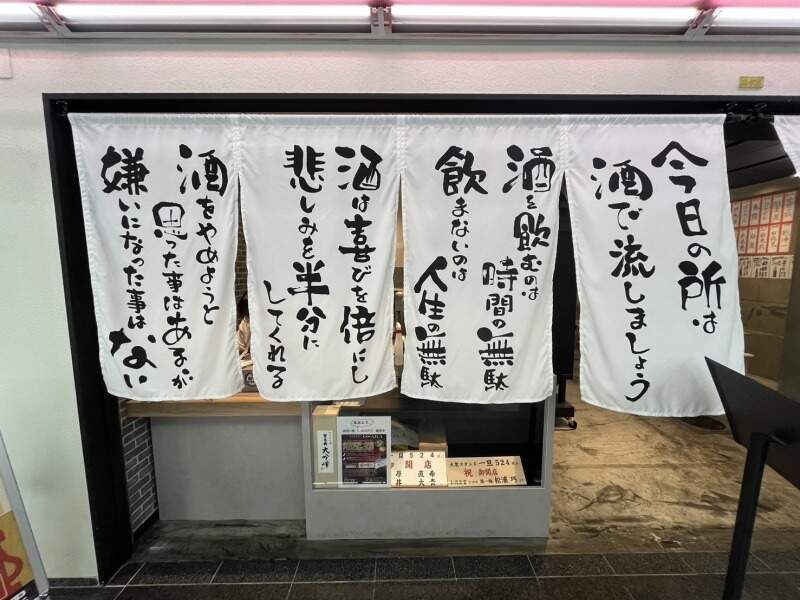 今日の所は
酒で流しましょう
酒を飲むのは
時間の無駄
飲まないのは
人生の無駄
酒は喜びを倍にし
悲しみを半分に
してくれる
酒をやめようと
思った事はあるが
嫌いになった事は
ない
大吟峰
OSAKA
524
開店
大衆スタンド一旦524
祝御開店
松浦巧